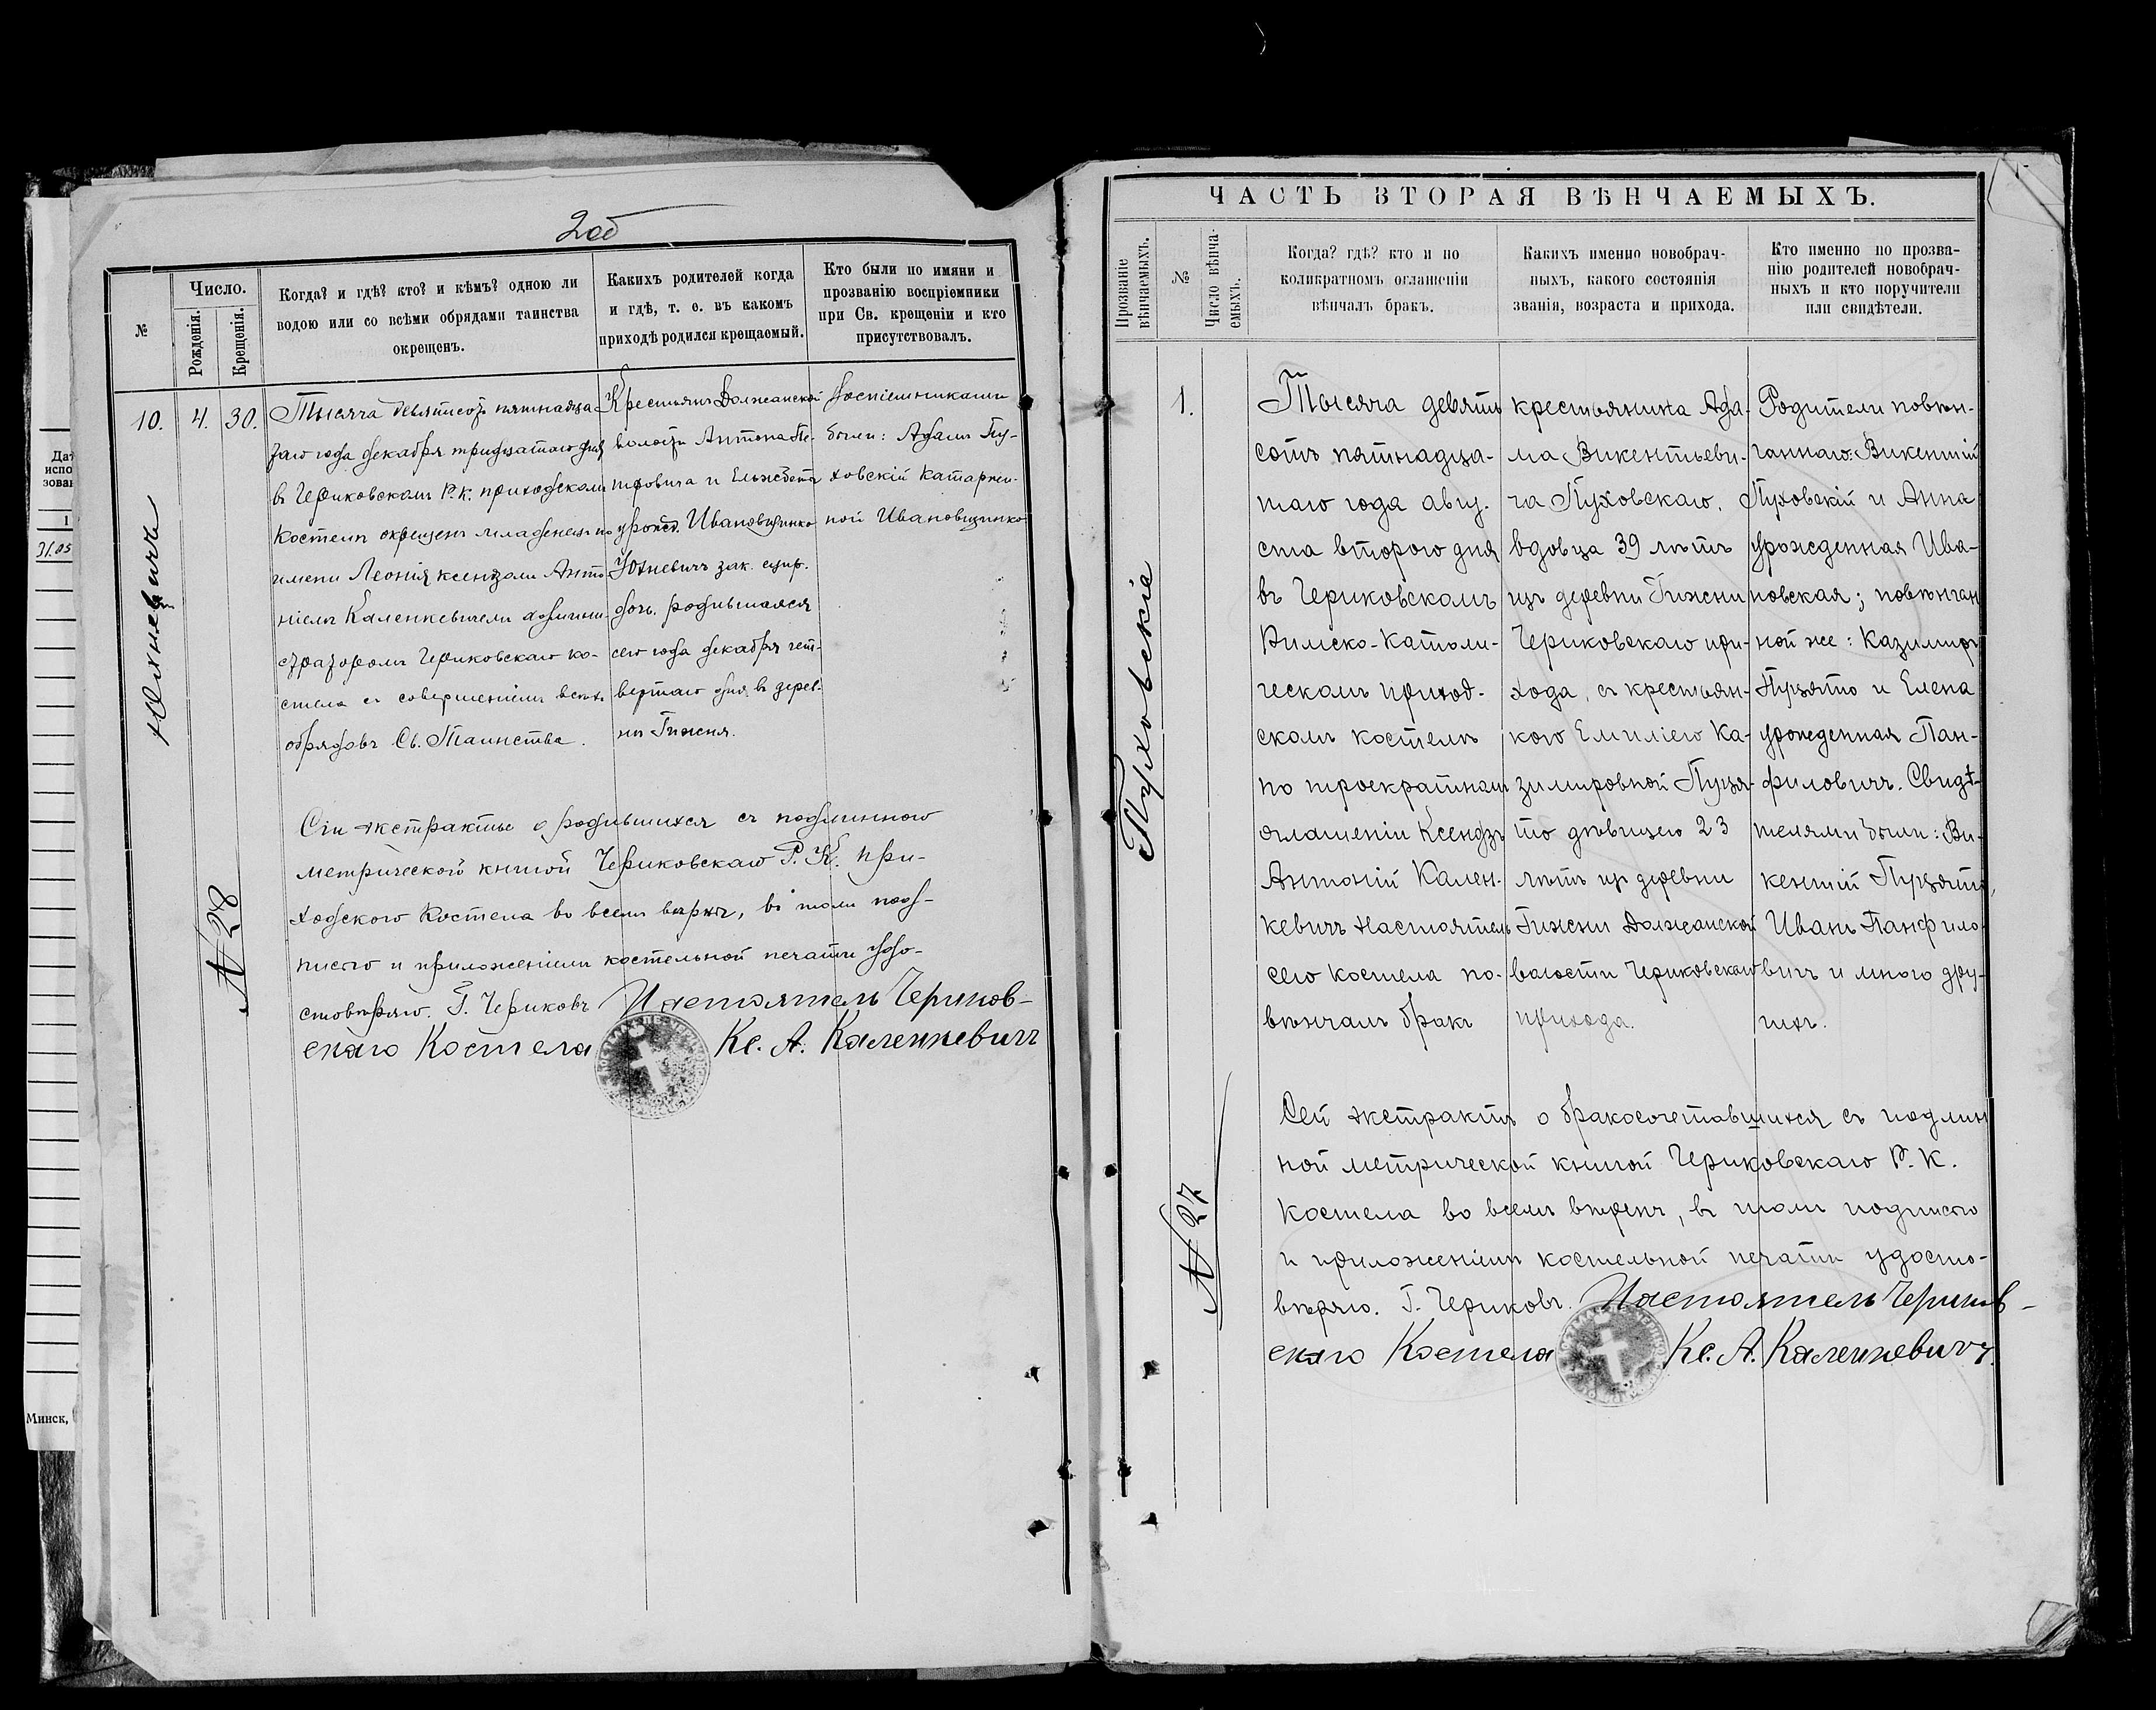 2об
№
Число.
Рожденія.
Крещенія.
Когда? и гдѣ? кто? и кѣмъ? одною ли
водою или со всѣми обрядами таинства
окрещенъ.
Каких родителей когда
и гдѣ, т. е. въ какомъ
приходѣ родился крещаемый.
Кто были по имяни и
прозванію воспріемники
при Св. крещеніи и кто
присутствовалъ.
Юхневичъ
10.
4.
30.
Тысяча девятисотъ пятнадца-
таго года декабря тридцатаго дня
въ Чериковскомъ Р. К. приходскомъ
Костелѣ окрещенъ младенецъ по
имени Леонія ксендзомъ Анто-
ніемъ Каленкевичемъ админи-
страторомъ Чериковскаго ко-
стела съ совершеніемъ всѣхъ
обрядовъ Св. Таинства.
Крестьянъ Должанской
волости Антона Пе-
тровича и Ельжбета
урожд. Ивановщинко
Юхневичъ зак. супр.
дочь, родившаяся
сего года декабря чет-
вертаго дня въ дерев-
нѣ Гижня.
Воспіемниками
были: Адамъ Пу-
ховскій Катаржи-
ной Ивановщинко
Сіи экстракты о родившихся съ подлинною
метрической книгой Чериковскаго Р. К. при-
ходского Костела во всемъ вѣрны, въ томъ под-
писью и приложеніемъ костельной печати удо-
стовѣряю. Г. Чериковъ Настоятель Чериков-
скаго Костела Кс. А. Каленкевичъ
№ 28
ЧАСТЬ ВТОРАЯ ВѢНЧАЕМЫХЪ.
Прозваніе
вѣнчаемыхъ.
№
Число вѣнча-
емыхъ.
Когда? гдѣ? кто и по
коликратномъ оглашеніи
вѣнчалъ бракъ.
Какихъ именно новобрач-
ныхъ, какого состоянія
званія, возраста и прихода.
Кто именно по прозва-
нію родителей новобрач-
ныхъ и кто поручители
или свидѣтели.
Пуховскіе
1.
Тысяча девять
сотъ пятнадца-
таго года авгу-
ста второго дня
въ Чериковскомъ
Римско-Католи-
ческомъ приход-
скомъ костелѣ
по троекратномъ
оглашеніи Ксендзъ
Антоній Кален-
кевичъ Настоятель
сего костела по-
вѣнчалъ бракъ
крестьянина Ада-
ма Викентьеви-
ча Пуховскаго,
вдовца 39 лѣтъ
изъ деревни Гижни
Чериковскаго при-
хода, съ крестьян-
кою Емиліею Ка-
зимировной Пузя-
то дѣвицею 23
лѣтъ изъ деревни
Гижни Должанской
волости Чериковскаго
прихода.
Родители повѣн-
чаннаго: Викентій
Пуховскій и Анна
урожденная Ива-
новская; повѣнчан
ной же: Казимиръ
Пузято и Елена
урожденная Пан-
филовичъ. Свидѣ-
телями были: Ви-
кентій Пузято,
Иванъ Панфило-
вичъ и много дру-
гихъ.
Сей экстрактъ о бракосочетавшихся съ подлин
ной метрической книгой Чериковскаго Р. К.
костела во всемъ вѣренъ, въ томъ подписью
и приложеніемъ костельной печати удосто-
вѣряю. Г. Чериковъ. Настоятель Чериков-
скаго Костела Кс. А. Каленкевичъ.
№ 27
31.05
Минск,